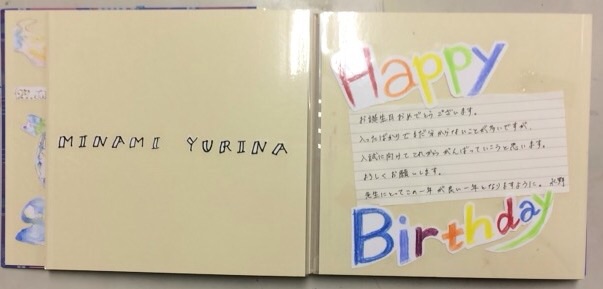 MINAMI YURINA
Happy
お誕生日おめでとうございます。
入ったばかりでまだ分からないことが多いですが、
入試に向けてこれからがんばっていこうと思います。
よろしくお願いします。
先生にとってこの一年が良い一年となりますように。水野
Birthday